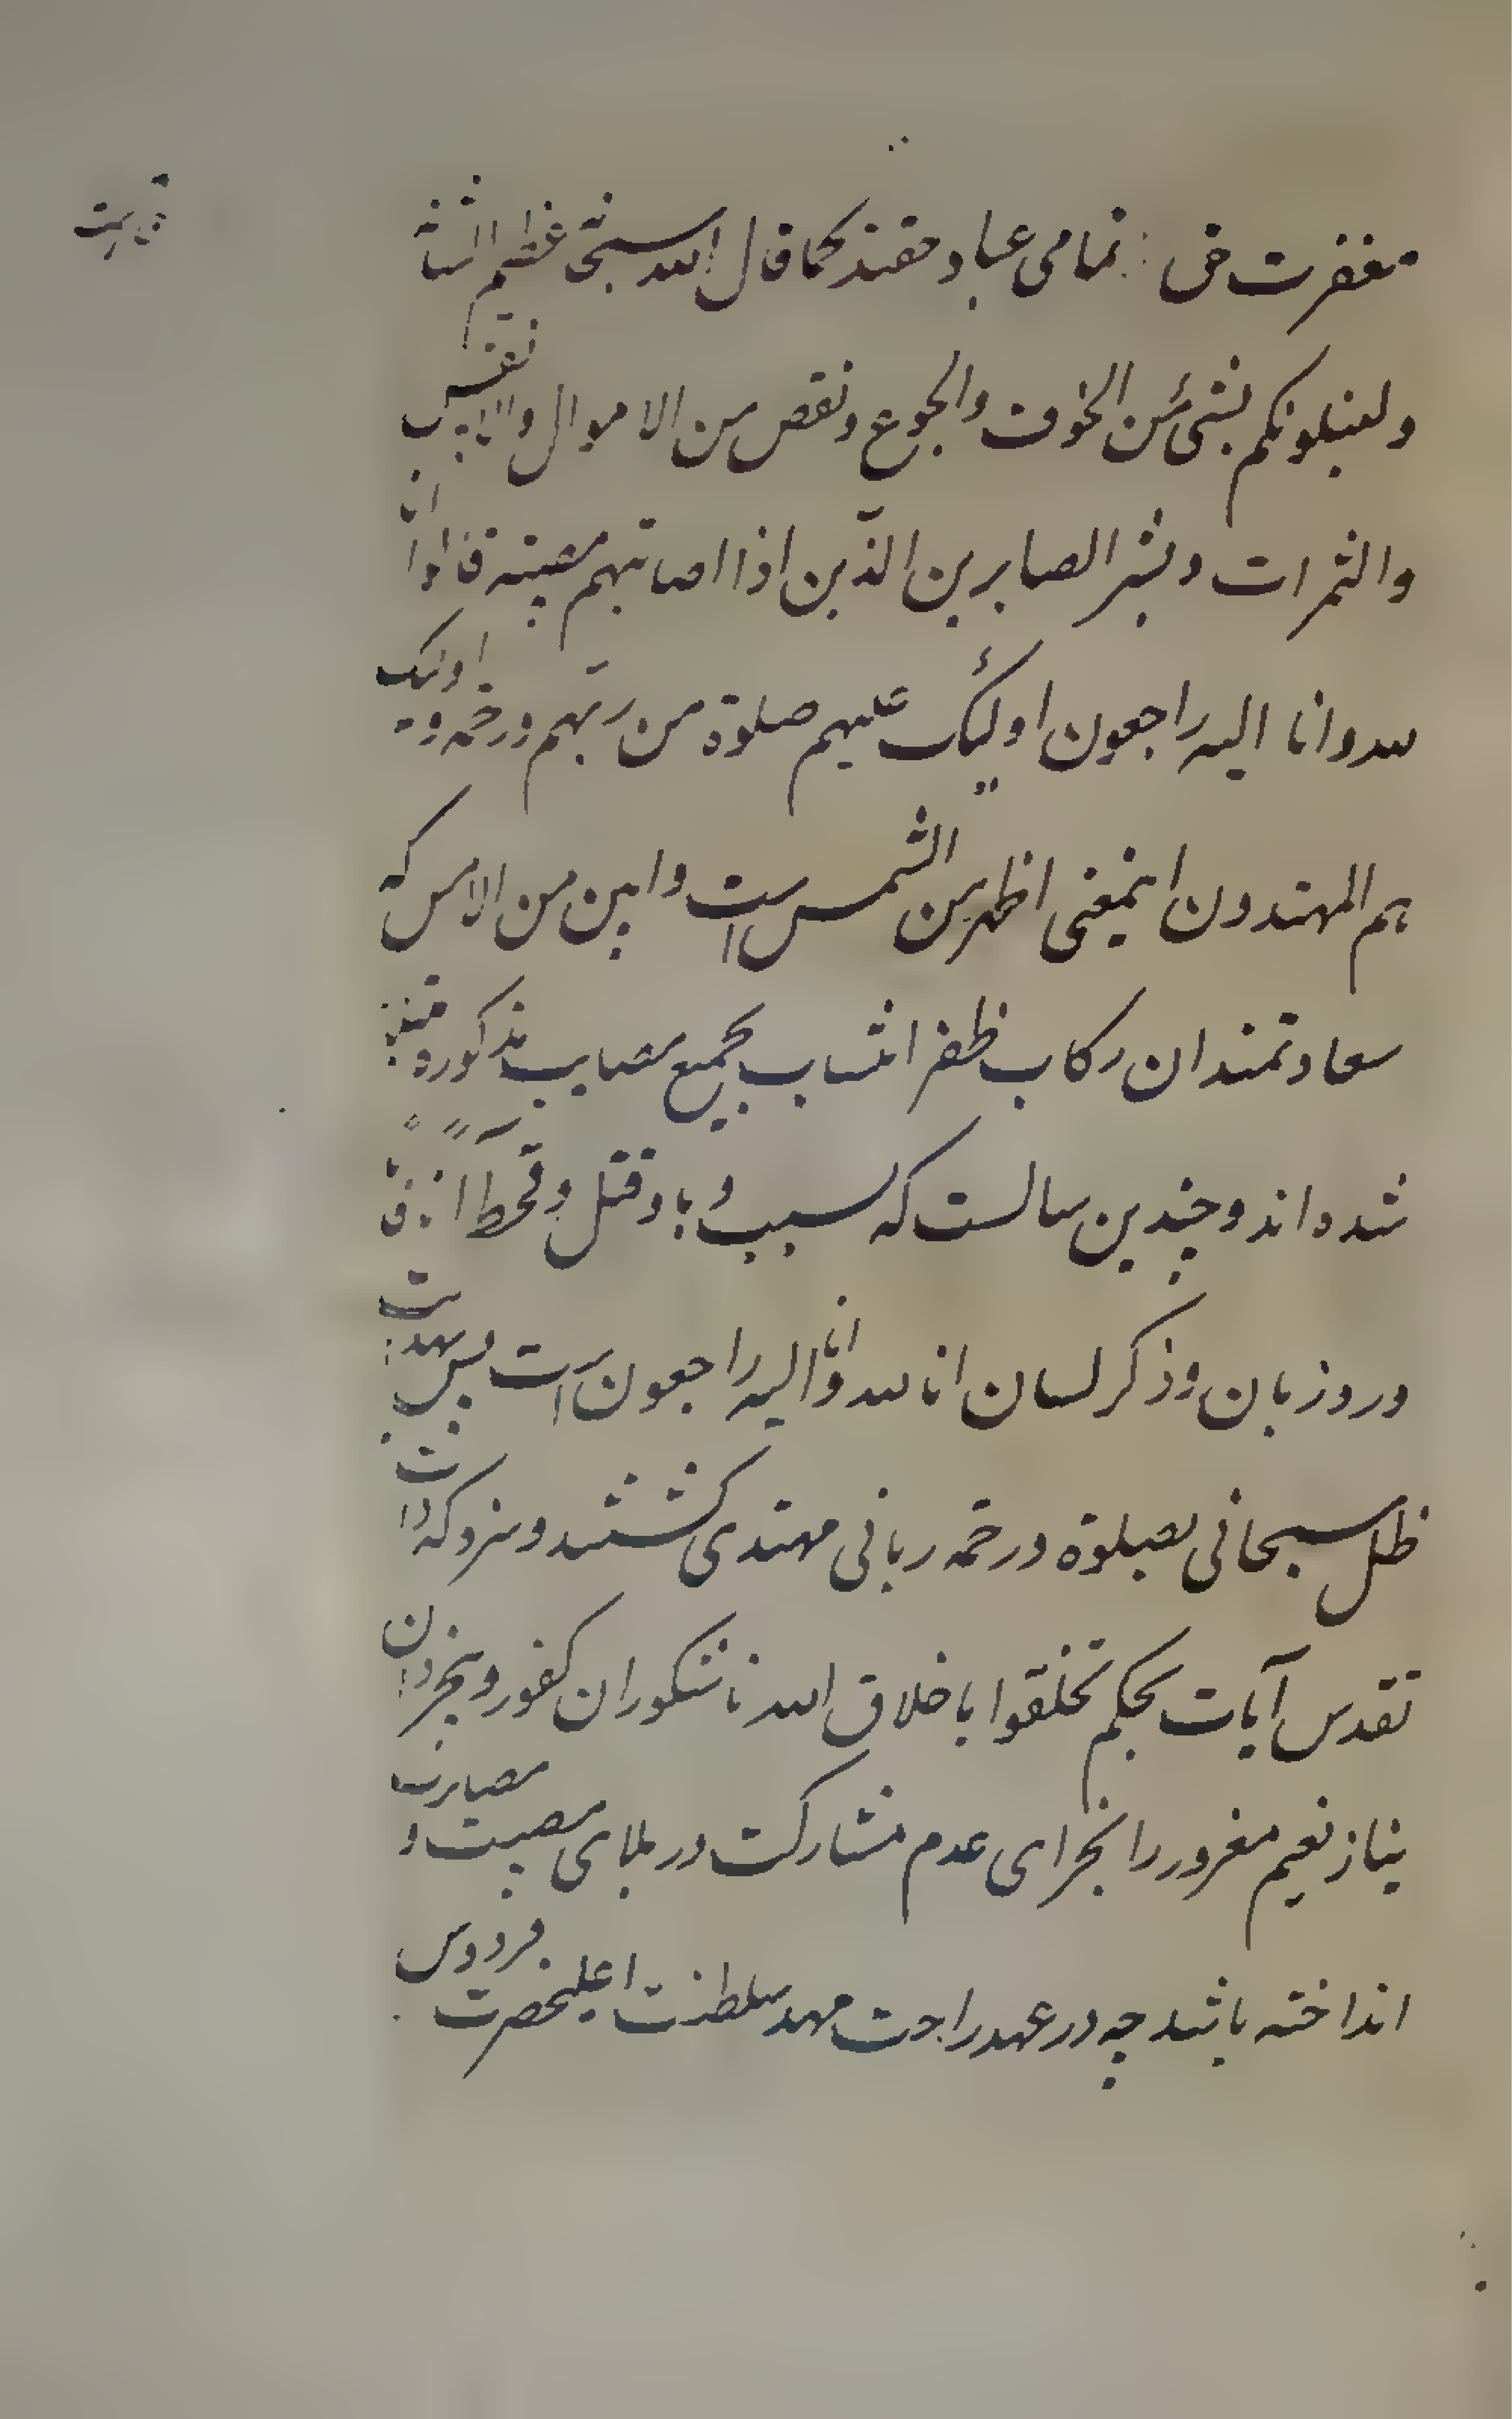 مغفرت حق تمامی عباد حقند کما قال الله سبحانه عظیم الشانه
ولنبلونکم بشئ من الخوف والجوع ونقص من الاموال والانفس
والثمرات وبشر الصابرین الذین اذا اصابتهم مصیبته قالوا انا
لله وانا الیه راجعون اولیٔک علیهم صلوة من ربهم ورحمه واولیک
هم المهتدون اینمعنی اظهر من الشمس است وابین من الامس که
سعادتمندان رکاب ظفر انتساب بجمیع مصایب مذکوره
شده اند وچندین سالست که بسبب وبا وقتل وقحط
ورد زبان وذکر لسان انا لله وانا الیه راجعون است پس
ظل سبحانی بصلوة ورحمه ربانی مهتدی گشتند وسزد که ذات
تقدس آیات بحکم تخلقوا باخلاق الله ناشکوران کفور وبیخردان
بناز نعیم مغرور را بجزای عدم مشارکت در بلای مصیبت و مصیبات
انداخته باشد چه در عهد راحت مهد سلطنت اعلیحضرت فردوس